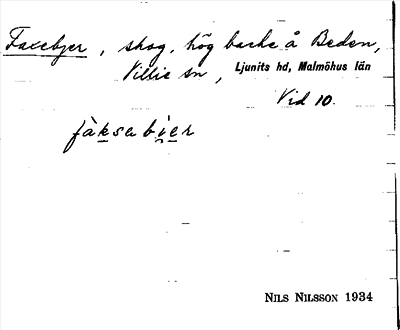 Faxebjer, skog, hög backe å Beden,
Villie sn, Ljunits hd, Malmöhus län
Vid 10.
fàksabíer
NILS NILSSON 1934